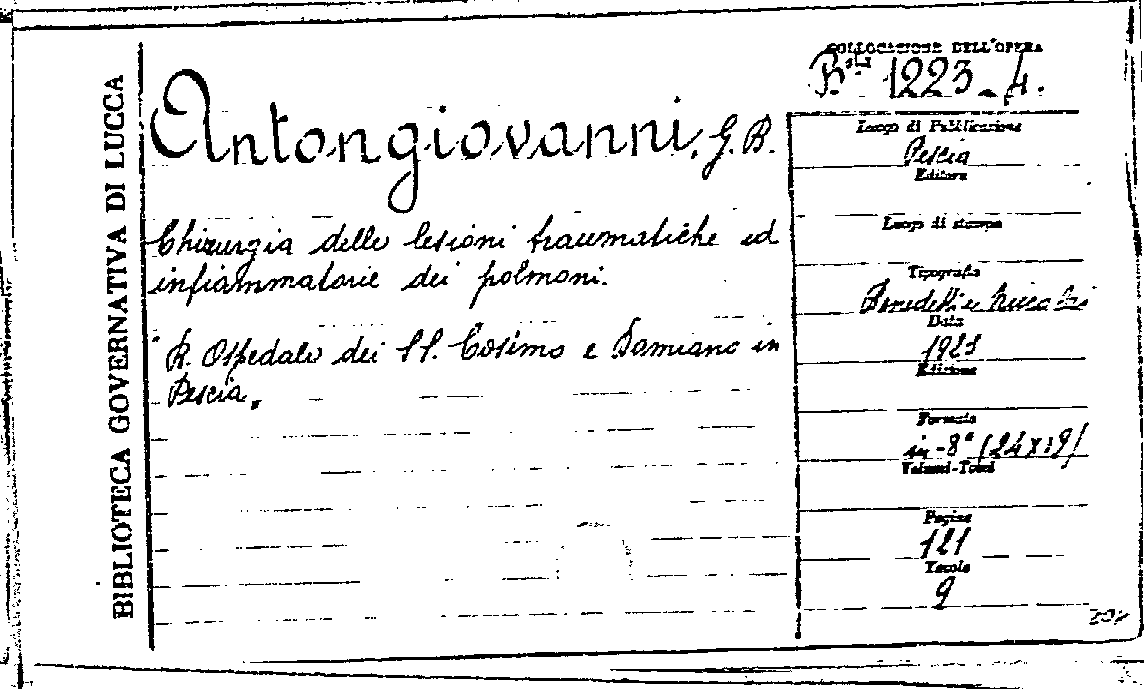 BIBLIOTECA GOVERNATIVA DI LUCCA
Antongiovanni, G. B.
Chirurgia delle lesioni traumatiche ed
infiammatorie dei polmoni.
R. Ospedale dei SS. Cosimo e Damiano in
Pescia.
COLLOCAZIONE DELL'OPERA
1223-4.
Luogo di Pubblicazione
Pescia
Editore
Luogo di stampa
Tipografia
Benedetti e
Data
Edizione
Formato
in-8° (24x19)
Volumi-Tomi
Pagine
121
Tavole
9